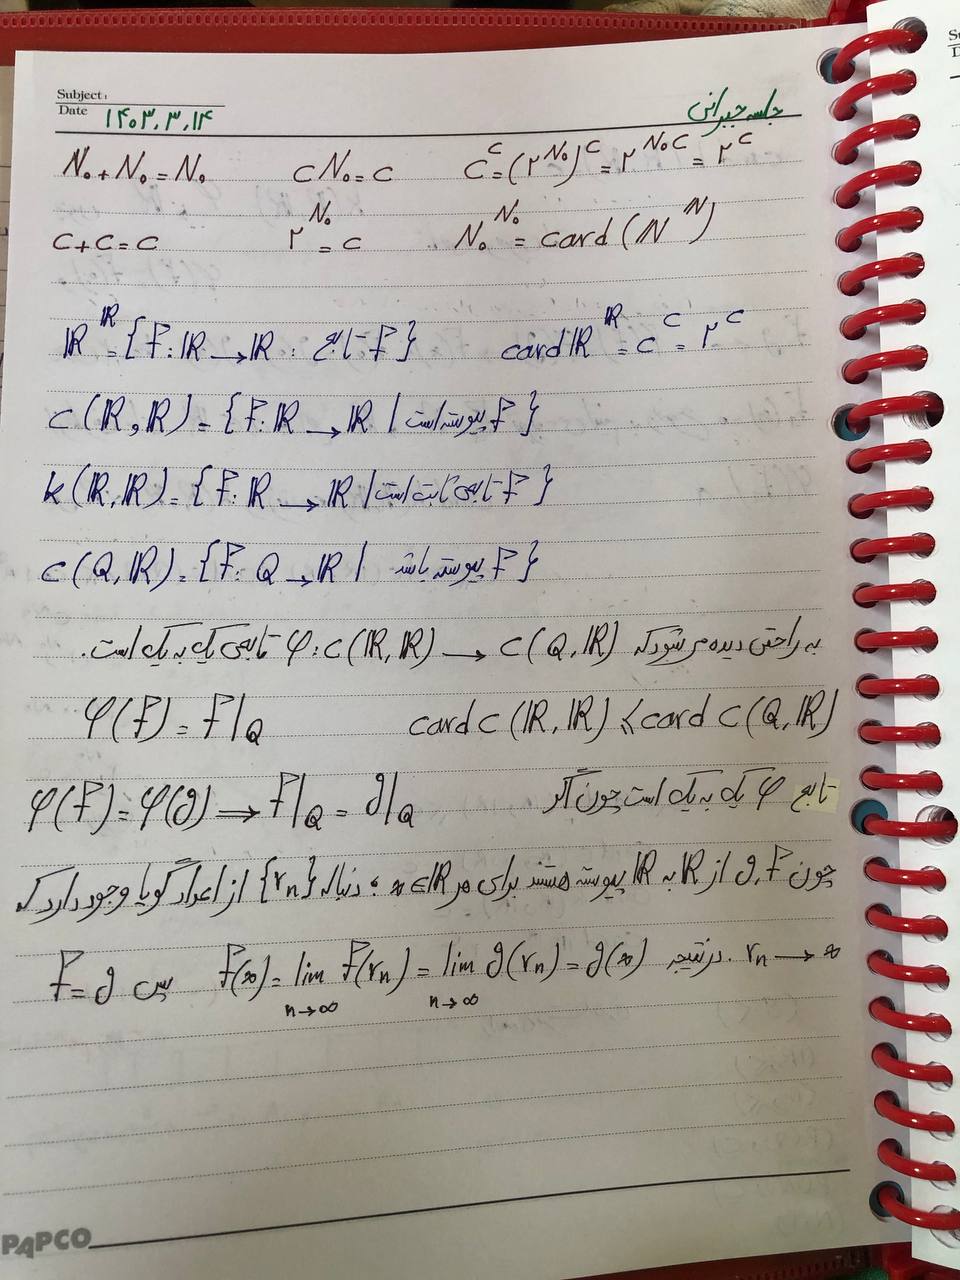 Subject:
Date ۱۴۰۳,۳,۱۴ جلسه جبرانی
ℵ₀ + ℵ₀ = ℵ₀   cℵ₀ = c   c^c = (۲^ℵ₀)^c = ۲^(ℵ₀c) = ۲^c
c + c = c   ۲^ℵ₀ = c   ℵ₀^ℵ₀ = card(ℕ^ℕ)
ℝ^ℝ = {f: ℝ → ℝ : تابع f}   card ℝ^ℝ = c^c = ۲^c
c(ℝ,ℝ) = {f: ℝ → ℝ | پیوسته است f}
k(ℝ,ℝ) = {f: ℝ → ℝ | تابعی ثابت است f}
c(Q,ℝ) = {f: Q → ℝ | پیوسته باشد f}
به راحتی دیده می شود که φ: c(ℝ,ℝ) → c(Q,ℝ) تابعی یک به یک است.
φ(f) = f|Q   card c(ℝ,ℝ) ≤ card c(Q,ℝ)
تابع φ یک به یک است چون اگر φ(f) = φ(g) → f|Q = g|Q
چون f,g از ℝ به ℝ پیوسته هستند برای هر x∈ℝ، دنباله {rn} از اعداد گویا وجود دارد که
rn → x. در نتیجه f(x) = lim n→∞ f(rn) = lim n→∞ g(rn) = g(x) پس f = g
PAPCO